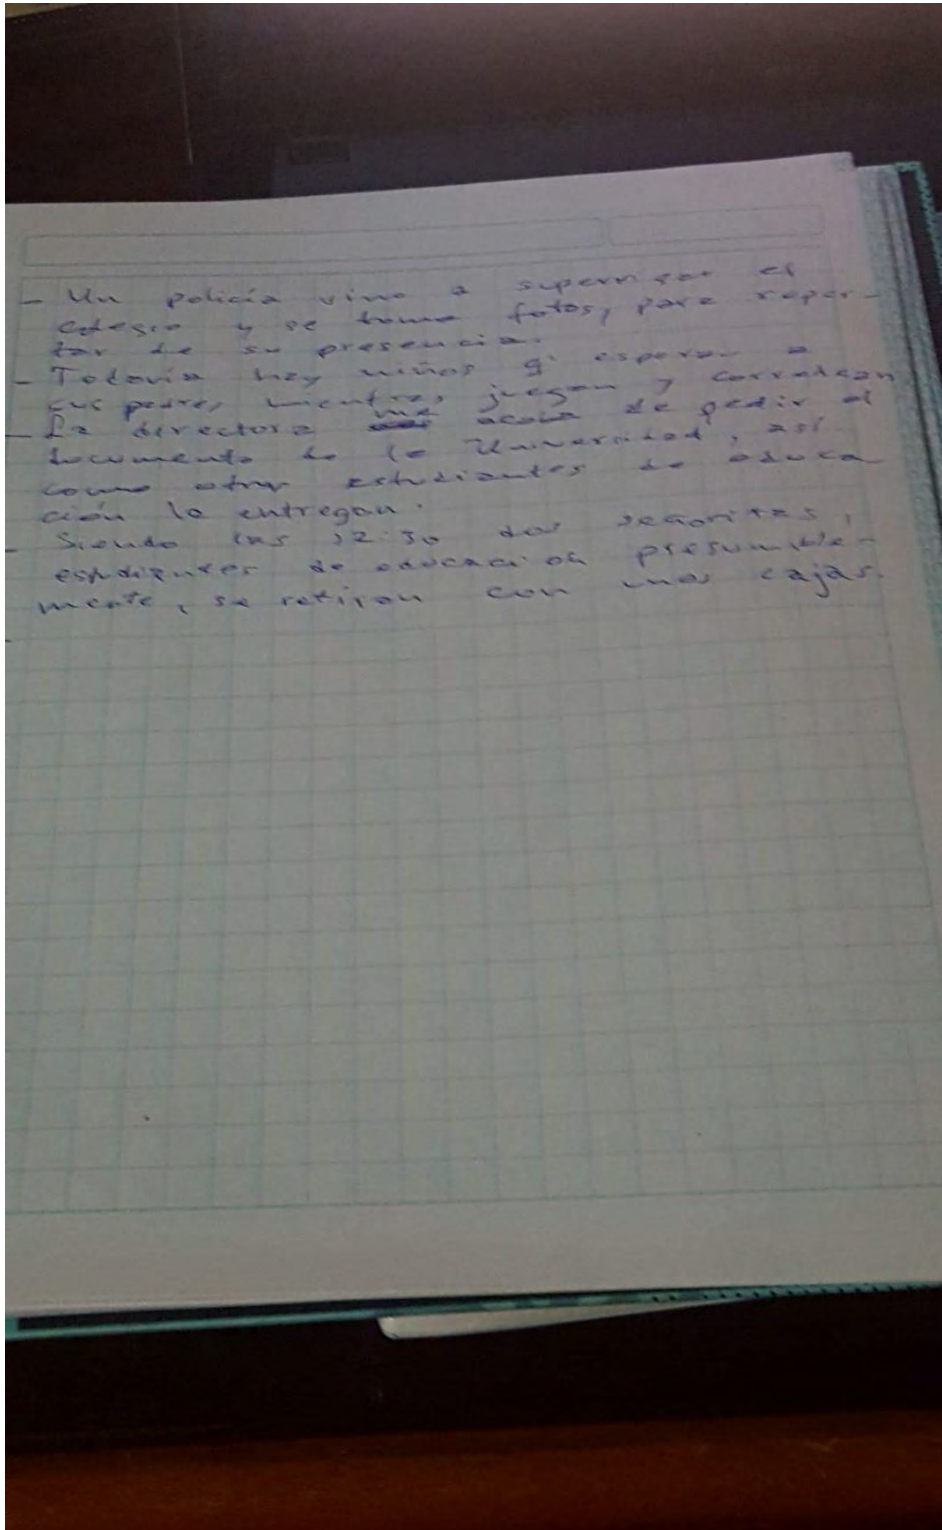 - Un policía vino a supervisar el
colegio y se tomo fotos, para repor-
tar de su presencia.
- Todavía hay niños q' esperan a
sus padres, mientras juegan y corretean
- La directora me acaba de pedir el
documento de la Universidad, así
como otros estudiantes de educa
ción lo entregan.
- Siendo las 12:30 dos señoritas,
estudiantes de educación presumible-
mente, se retiran con unas cajas.
-